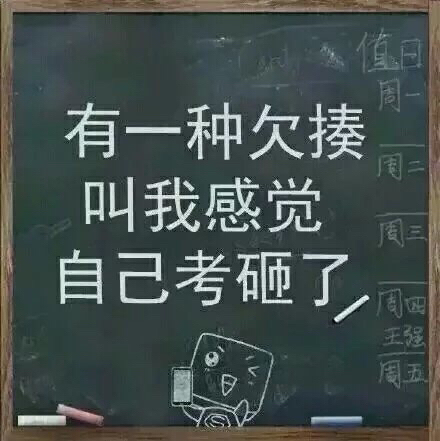 有一种欠揍
叫我感觉
自己考砸了
值日
周一
周二
周三
周四
王强
周五